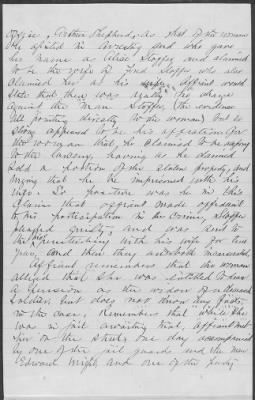 as that of the woman
he assisted in arresting and who gave
his name as Alice Stopfer and claimed
to be the wife of Fred Stopfer who also
claimed her as his wife, affiant would
state that there was really no charge
against the man Stopfer, the evidence
all pointing directly to the woman, but so
strong appeared to be his affection for
the woman that he claimed to be a party
to the larceny, having as he claimed
sold a portion of the stolen property, and
that he be imprisoned with his
wife. So positive was he in this
claim that affiant made
to his participation in the crime, Stopfer
pleaded guilty, and was sent to
the penitentiary with his wife for two
years, and there they are both incarcerated.
Affiant remembers that the woman
alleged that she was entitled to draw
a pension as the widow of a deceased
soldier, but does not know any facts
in the case. Remembers that while she
was in jail awaiting trial, affiant met
her on the street one day accompanied
by one of the jail guards and the man
Edward and one of the